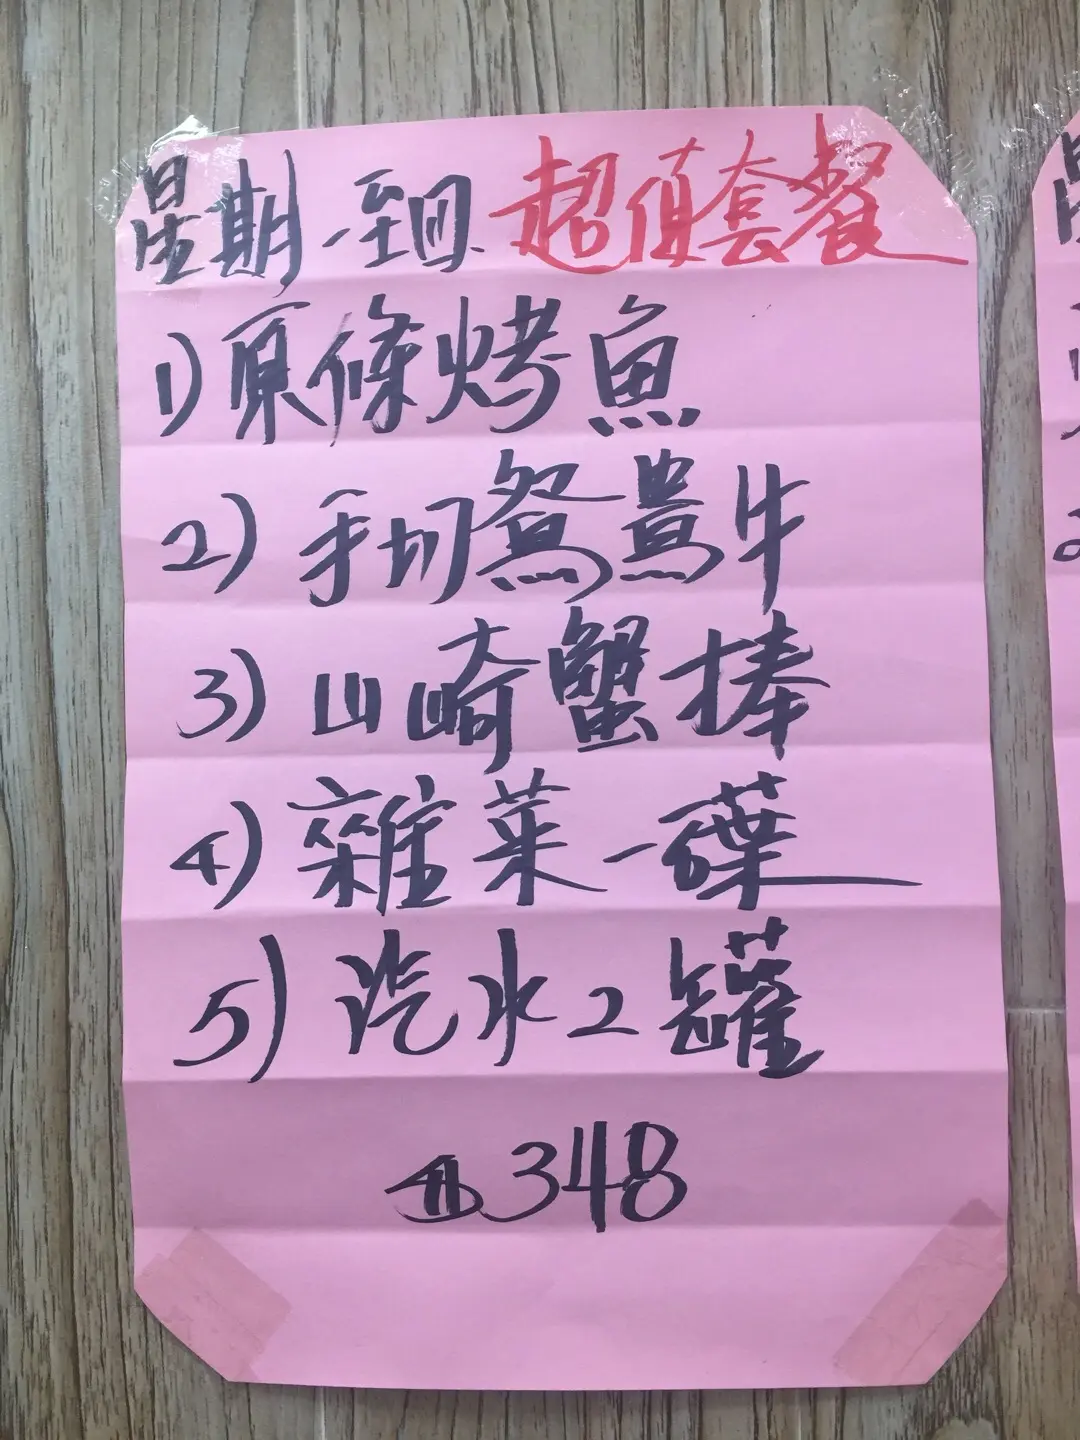 星期一至四 超值套餐
1) 原條烤魚
2) 手切鴛鴦牛
3) 山崎蟹棒
4) 雜菜一碟
5) 汽水2罐
$348